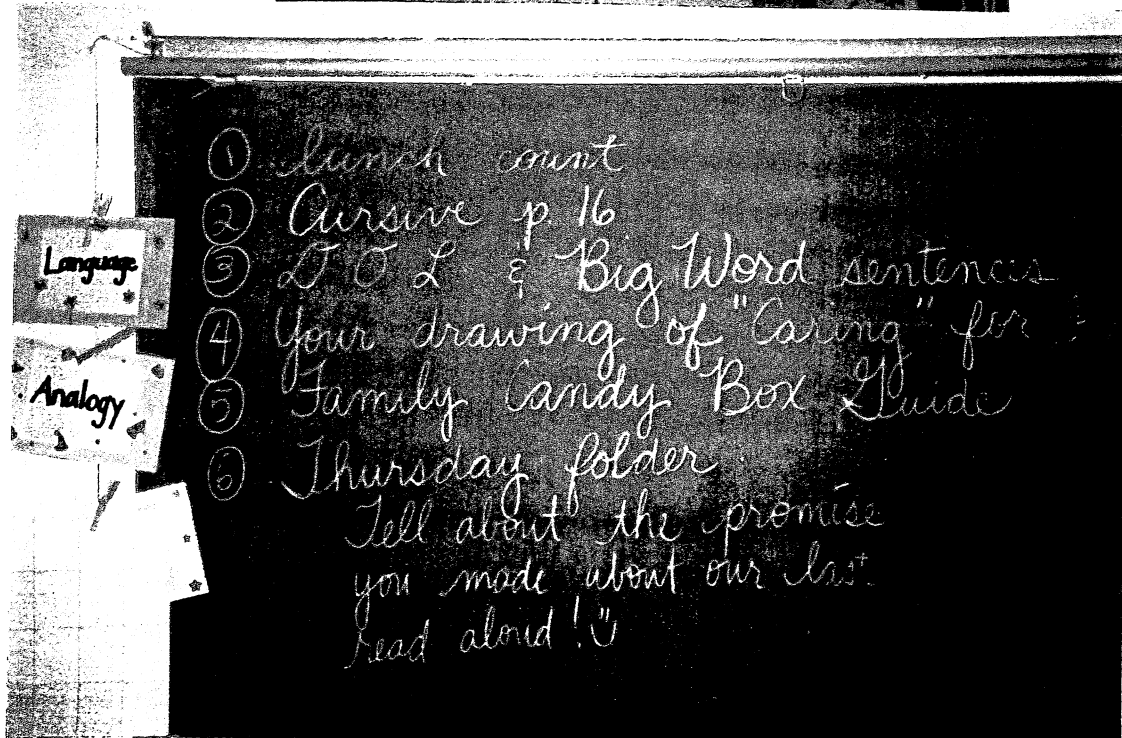 ① lunch count
② Cursive p. 16
③ D O L & Big Word sentences
④ Your drawing of "Caring" for
⑤ Family Candy Box Guide
⑥ Thursday folder.
Tell about the promise
you made about our last
read aloud!
Language
Analogy